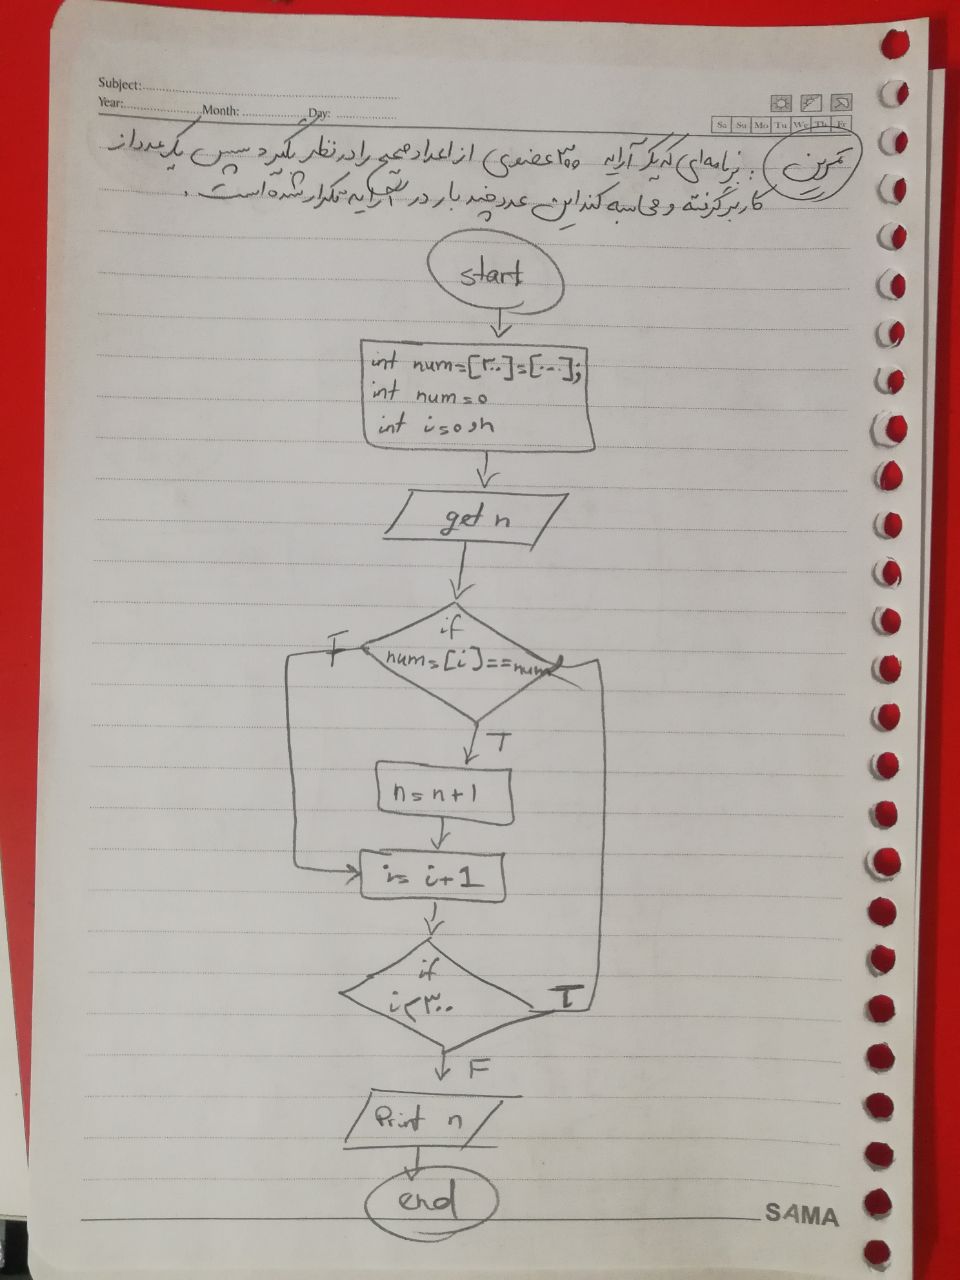 Subject:
Year: Month: Day:
Sa Su Mo Tu We Th Fr
تمرین : برنامه‌ای که یک آرایه ۳۰۰ عضوی از اعداد صحیح را در نظر بگیرد سپس یک عدد از
کاربر گرفته و محاسبه کند این عدد چند بار در آرایه تکرار شده است .
start
int num=[۳۰۰]=[...];
int num=0
int i=0,n
get n
if
num=[i]==num
F
T
n=n+1
i=i+1
if
i<۳۰۰
T
F
Print n
end
SAMA